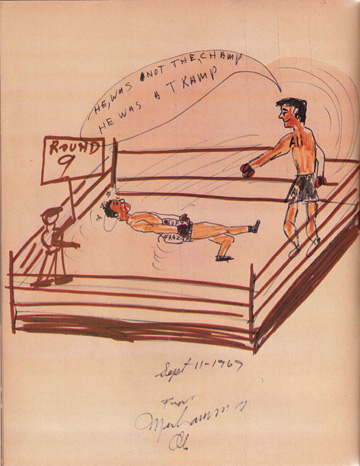 HE, WAS NOT THE, CHAMP
HE WAS A TRAMP
ROUND
9
Sept 11-1967
From
Muhammad
Ali